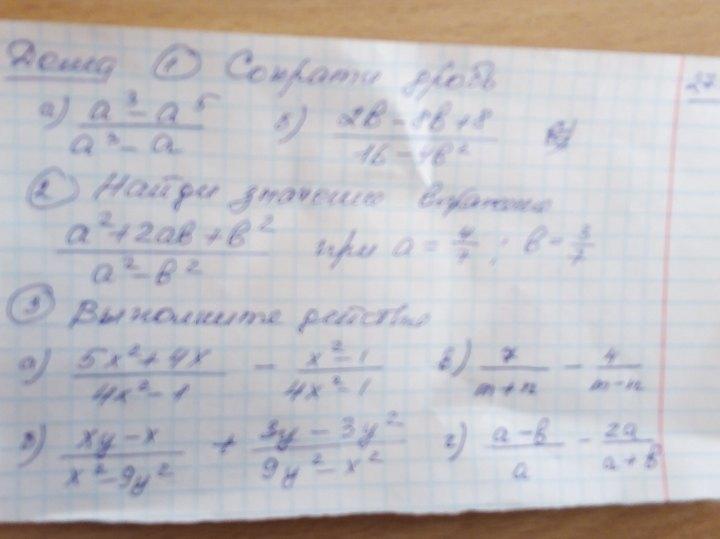 Дома ① Сократи дробь 27
а) (a³ - a⁵)/(a³ - a) б) (2b - 8b + 8)/(16 - 4b²)
② Найди значение выражения
(a² + 2ab + b²)/(a² - b²) при a = 4/7 ; b = 3/7
③ Выполните действие
а) (5x² + 4x)/(4x² - 1) - (x² - 1)/(4x² - 1) в) 7/(m+n) - 4/(m-n)
б) (xy - x)/(x² - 9y²) + (3y - 3y²)/(9y² - x²) г) (a - b)/a - 2a/(a + b)